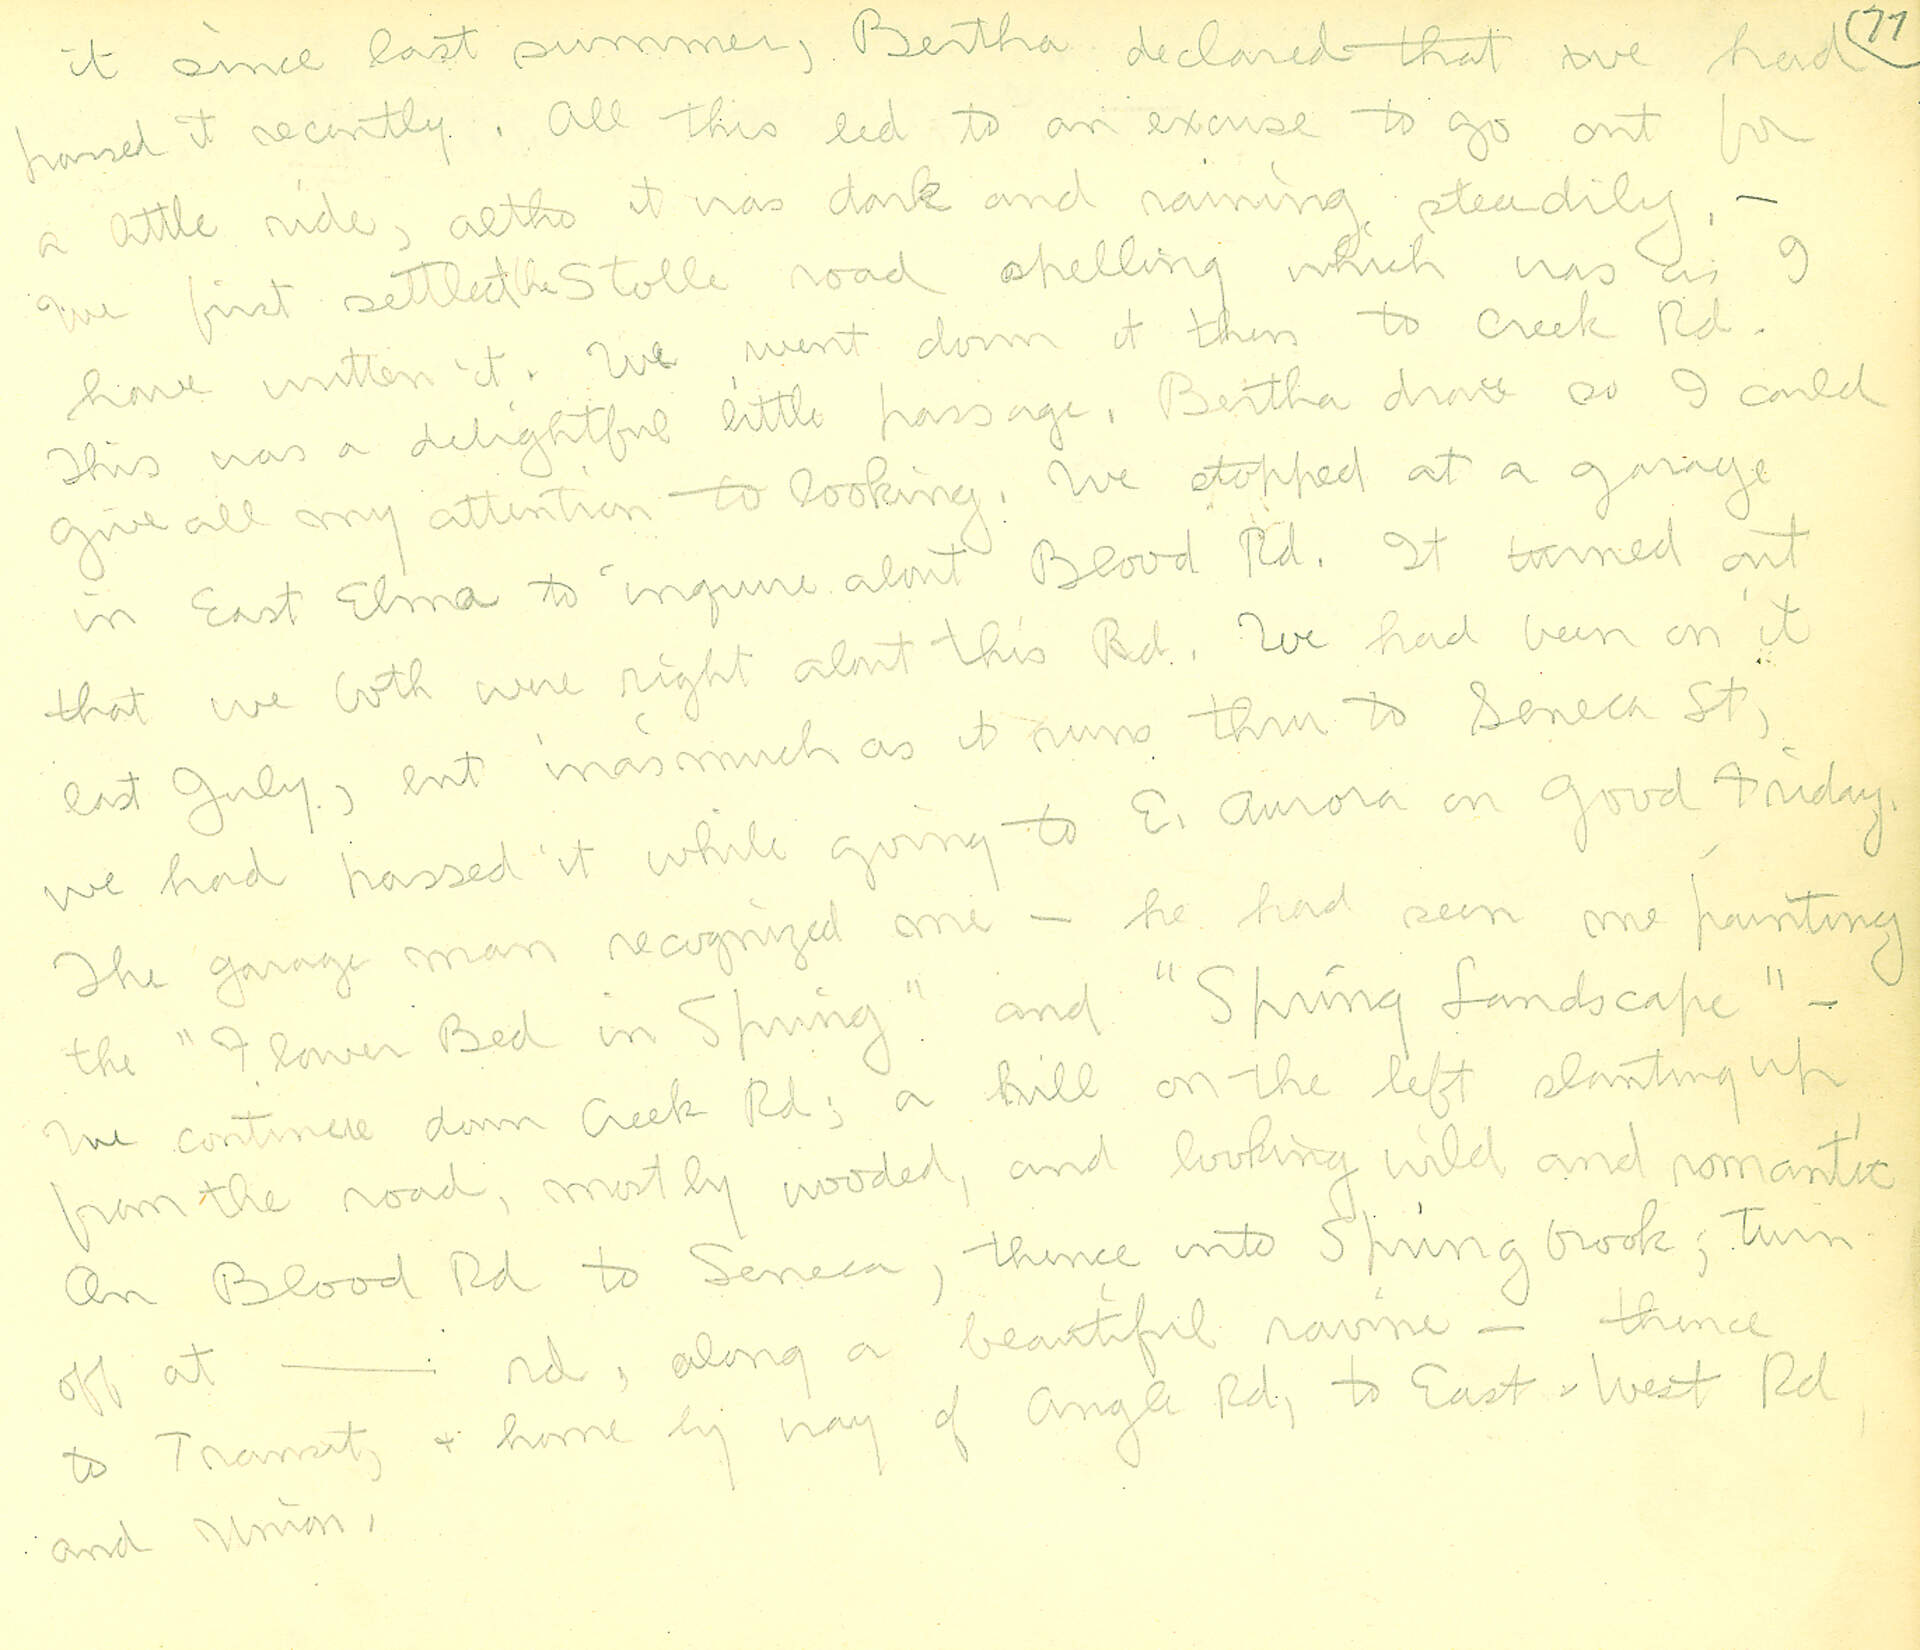 it since last summer, Bertha declared that we had 77
passed it recently. All this led to an excuse to go out for
a little ride, altho it was dark and raining steadily. —
We first settled the Stolle road spelling which was as I
have written it. We went down it then to Creek Rd.
This was a delightful little passage. Bertha drove so I could
give all my attention to looking. We stopped at a garage
in East Elma to inquire about Blood Rd. It turned out
that we both were right about this Rd. We had been on it
last July, but inasmuch as it runs thru to Seneca St,
we had passed it while going to E. Aurora on Good Friday.
The garage man recognized me — he had seen me painting
the "Flower Bed in Spring" and "Spring Landscape" —
We continue down Creek Rd; a hill on the left slanting up
from the road, mostly wooded, and looking wild and romantic
On Blood Rd to Seneca, thence into Spring brook; turn
off at ——— rd, along a beautiful ravine — thence
to Transit, + home by way of Angle Rd, to East + West Rd,
and Union.